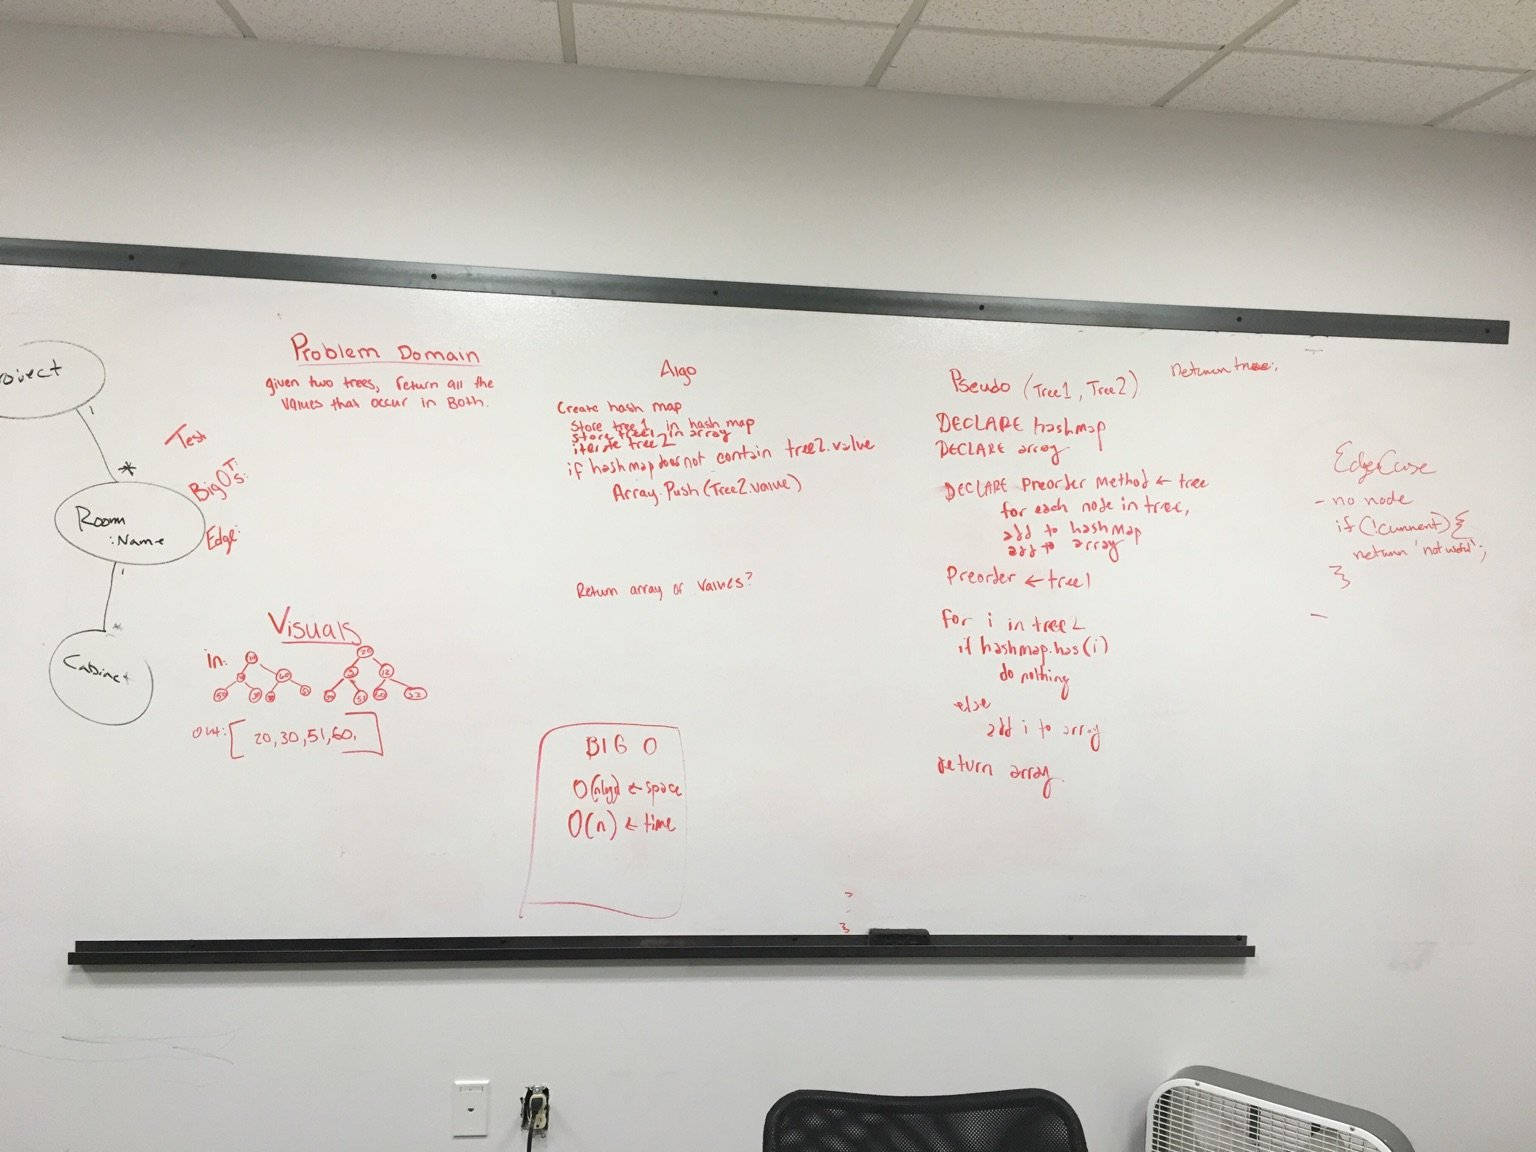 Room
:Name
Cabinet
*
Test
Big O
Edge:
Problem Domain
given two trees, return all the
values that occur in Both.
Visuals
in:
out: [ 20, 30, 51, 60, ]
Algo
Create hash map
Store tree1 in hash map
store tree1 in array
iterate tree2
if hashmap does not contain tree2.value
Array.Push(Tree2.value)
Return array of values?
BIG O
← space
O(n) ← time
Pseudo (Tree1, Tree2)
DECLARE hashmap
DECLARE array
DECLARE Preorder Method ← tree
for each node in tree,
add to hashmap
add to array
Preorder ← tree1
for i in tree2
if hashmap.has(i)
do nothing
else
add i to array
return array.
return tree;
Edge Case
- no node
if (!current) {
return 'not useful';
}
-